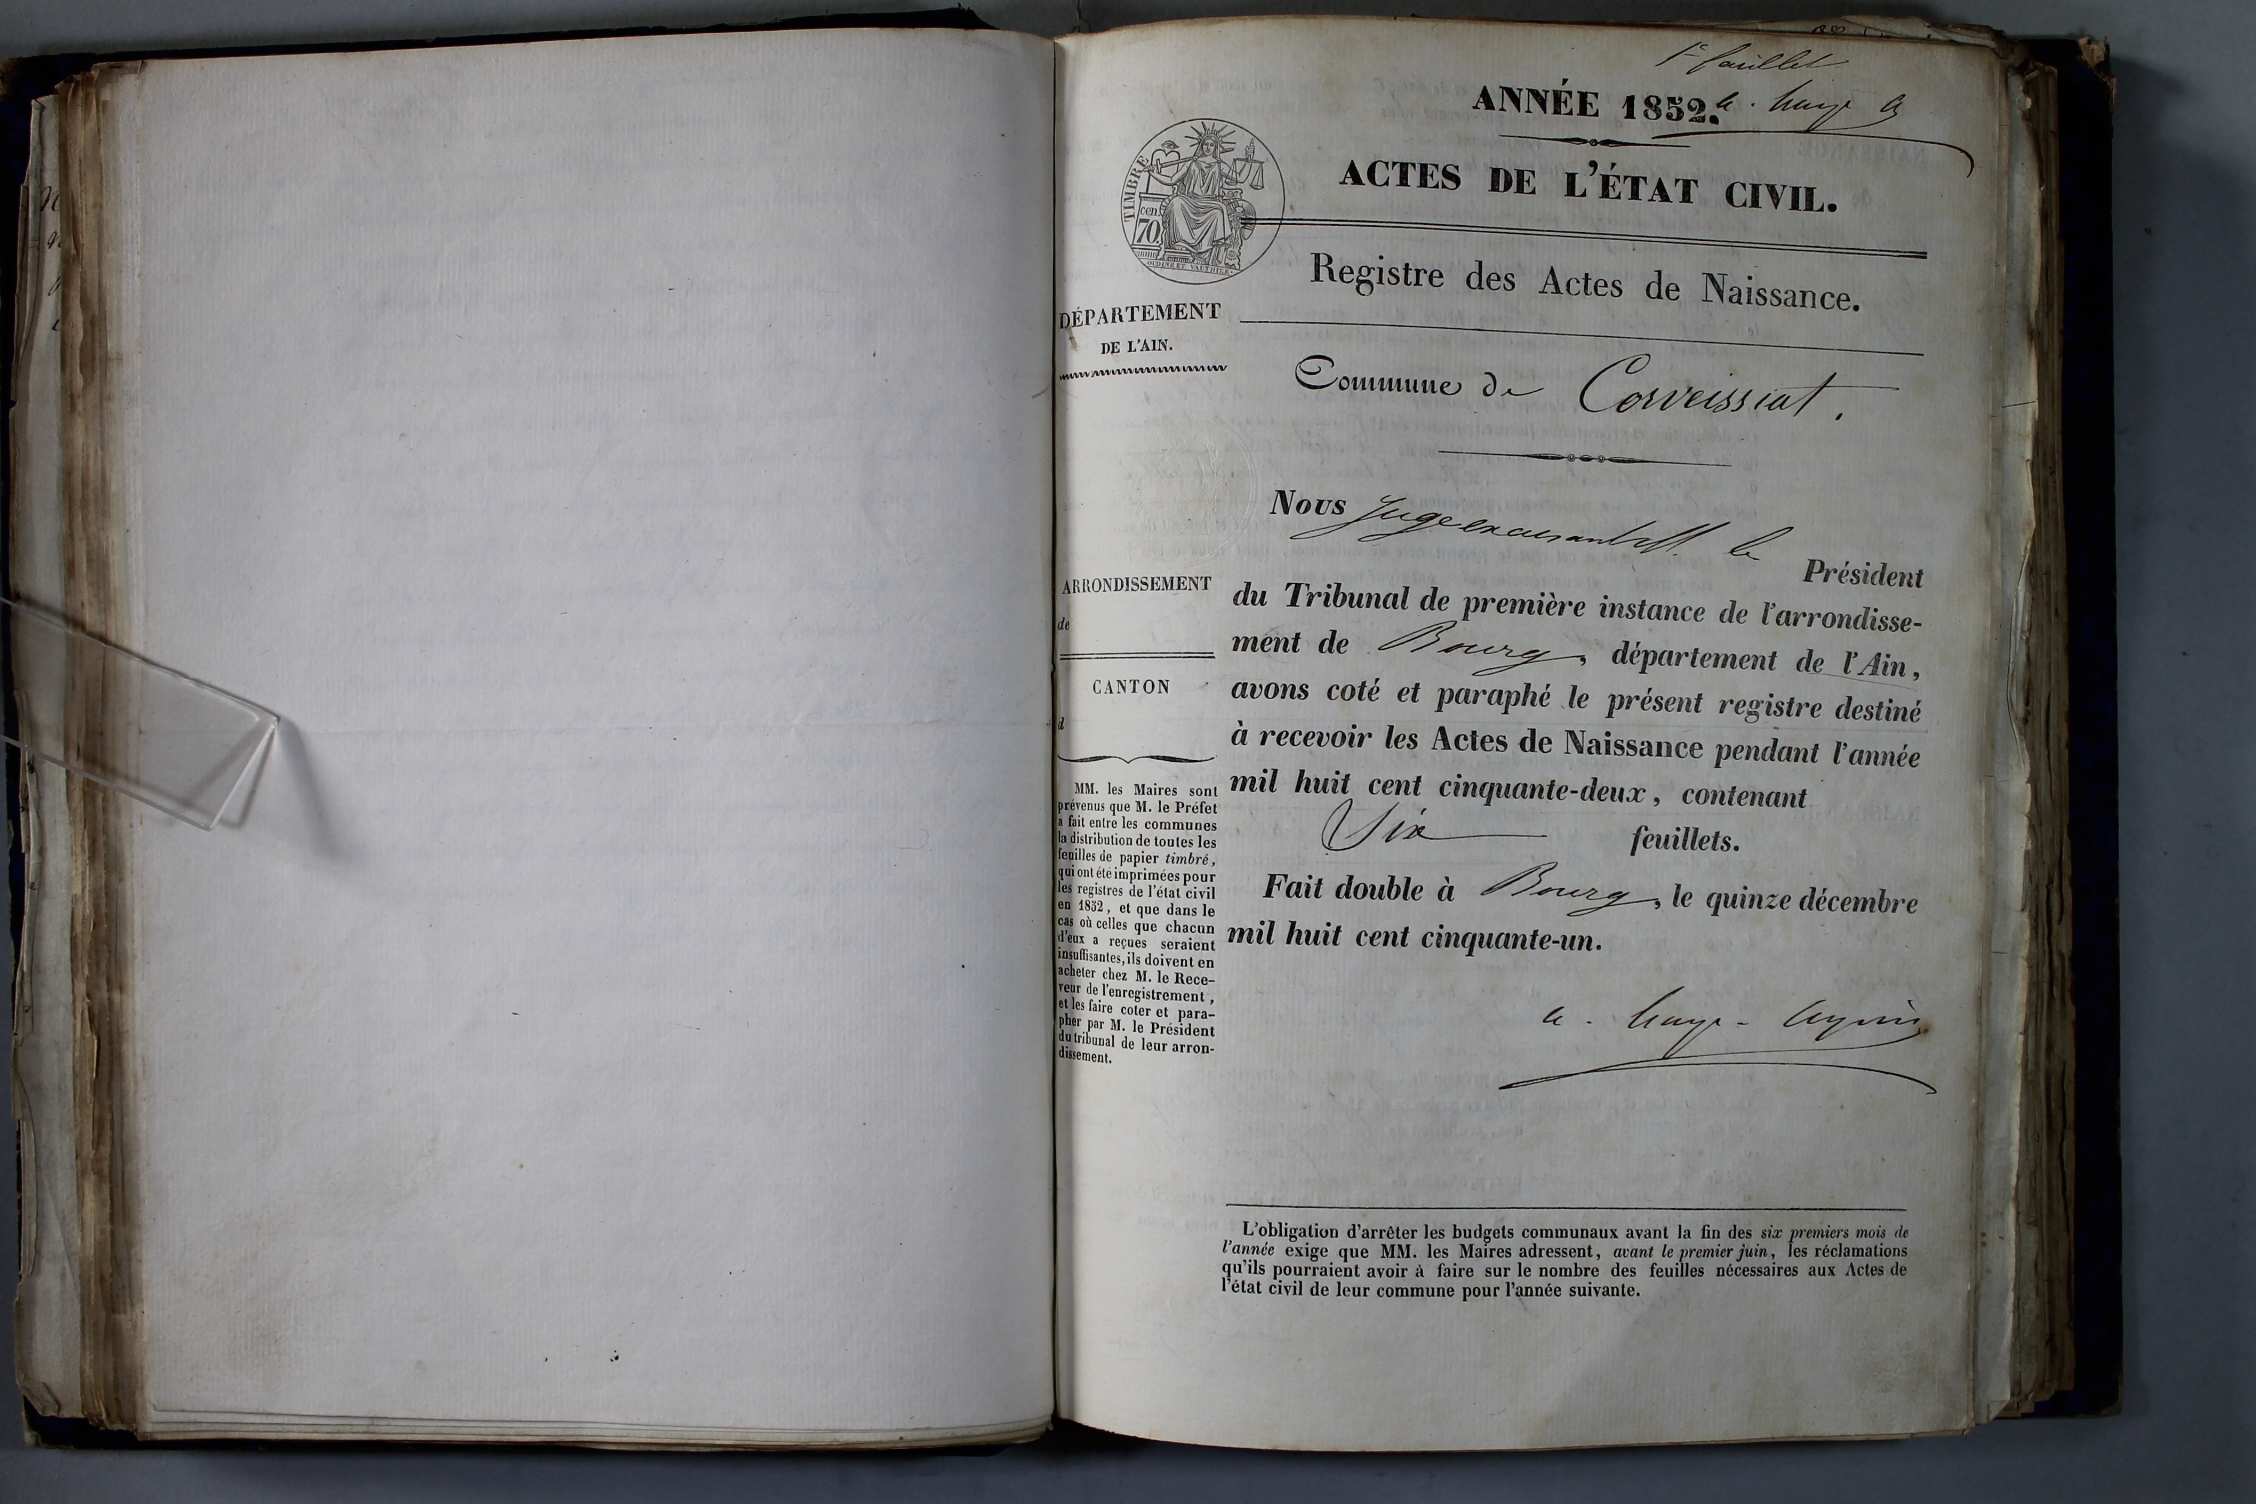 1er feuillet
ANNÉE 1852.
TIMBRE
cen.
70.
OUDINE ET VAUTHIER.
ACTES DE L'ÉTAT CIVIL.
Registre des Actes de Naissance.
DÉPARTEMENT
DE L'AIN.
Commune de Corveissiat.
Nous Juge le
Président
du Tribunal de première instance de l'arrondisse-
ment de Bourg, département de l'Ain,
avons coté et paraphé le présent registre destiné
à recevoir les Actes de Naissance pendant l'année
mil huit cent cinquante-deux, contenant
Six feuillets.
Fait double à Bourg, le quinze décembre
mil huit cent cinquante-un.
ARRONDISSEMENT
de
CANTON
d
MM. les Maires sont
prévenus que M. le Préfet
a fait entre les communes
la distribution de toutes les
feuilles de papier timbré,
qui ont été imprimées pour
les registres de l'état civil
en 1852, et que dans le
cas où celles que chacun
d'eux a reçues seraient
insuffisantes, ils doivent en
acheter chez M. le Rece-
veur de l'enregistrement,
et les faire coter et para-
pher par M. le Président
du tribunal de leur arron-
dissement.
L'obligation d'arrêter les budgets communaux avant la fin des six premiers mois de
l'année exige que MM. les Maires adressent, avant le premier juin, les réclamations
qu'ils pourraient avoir à faire sur le nombre des feuilles nécessaires aux Actes de
l'état civil de leur commune pour l'année suivante.